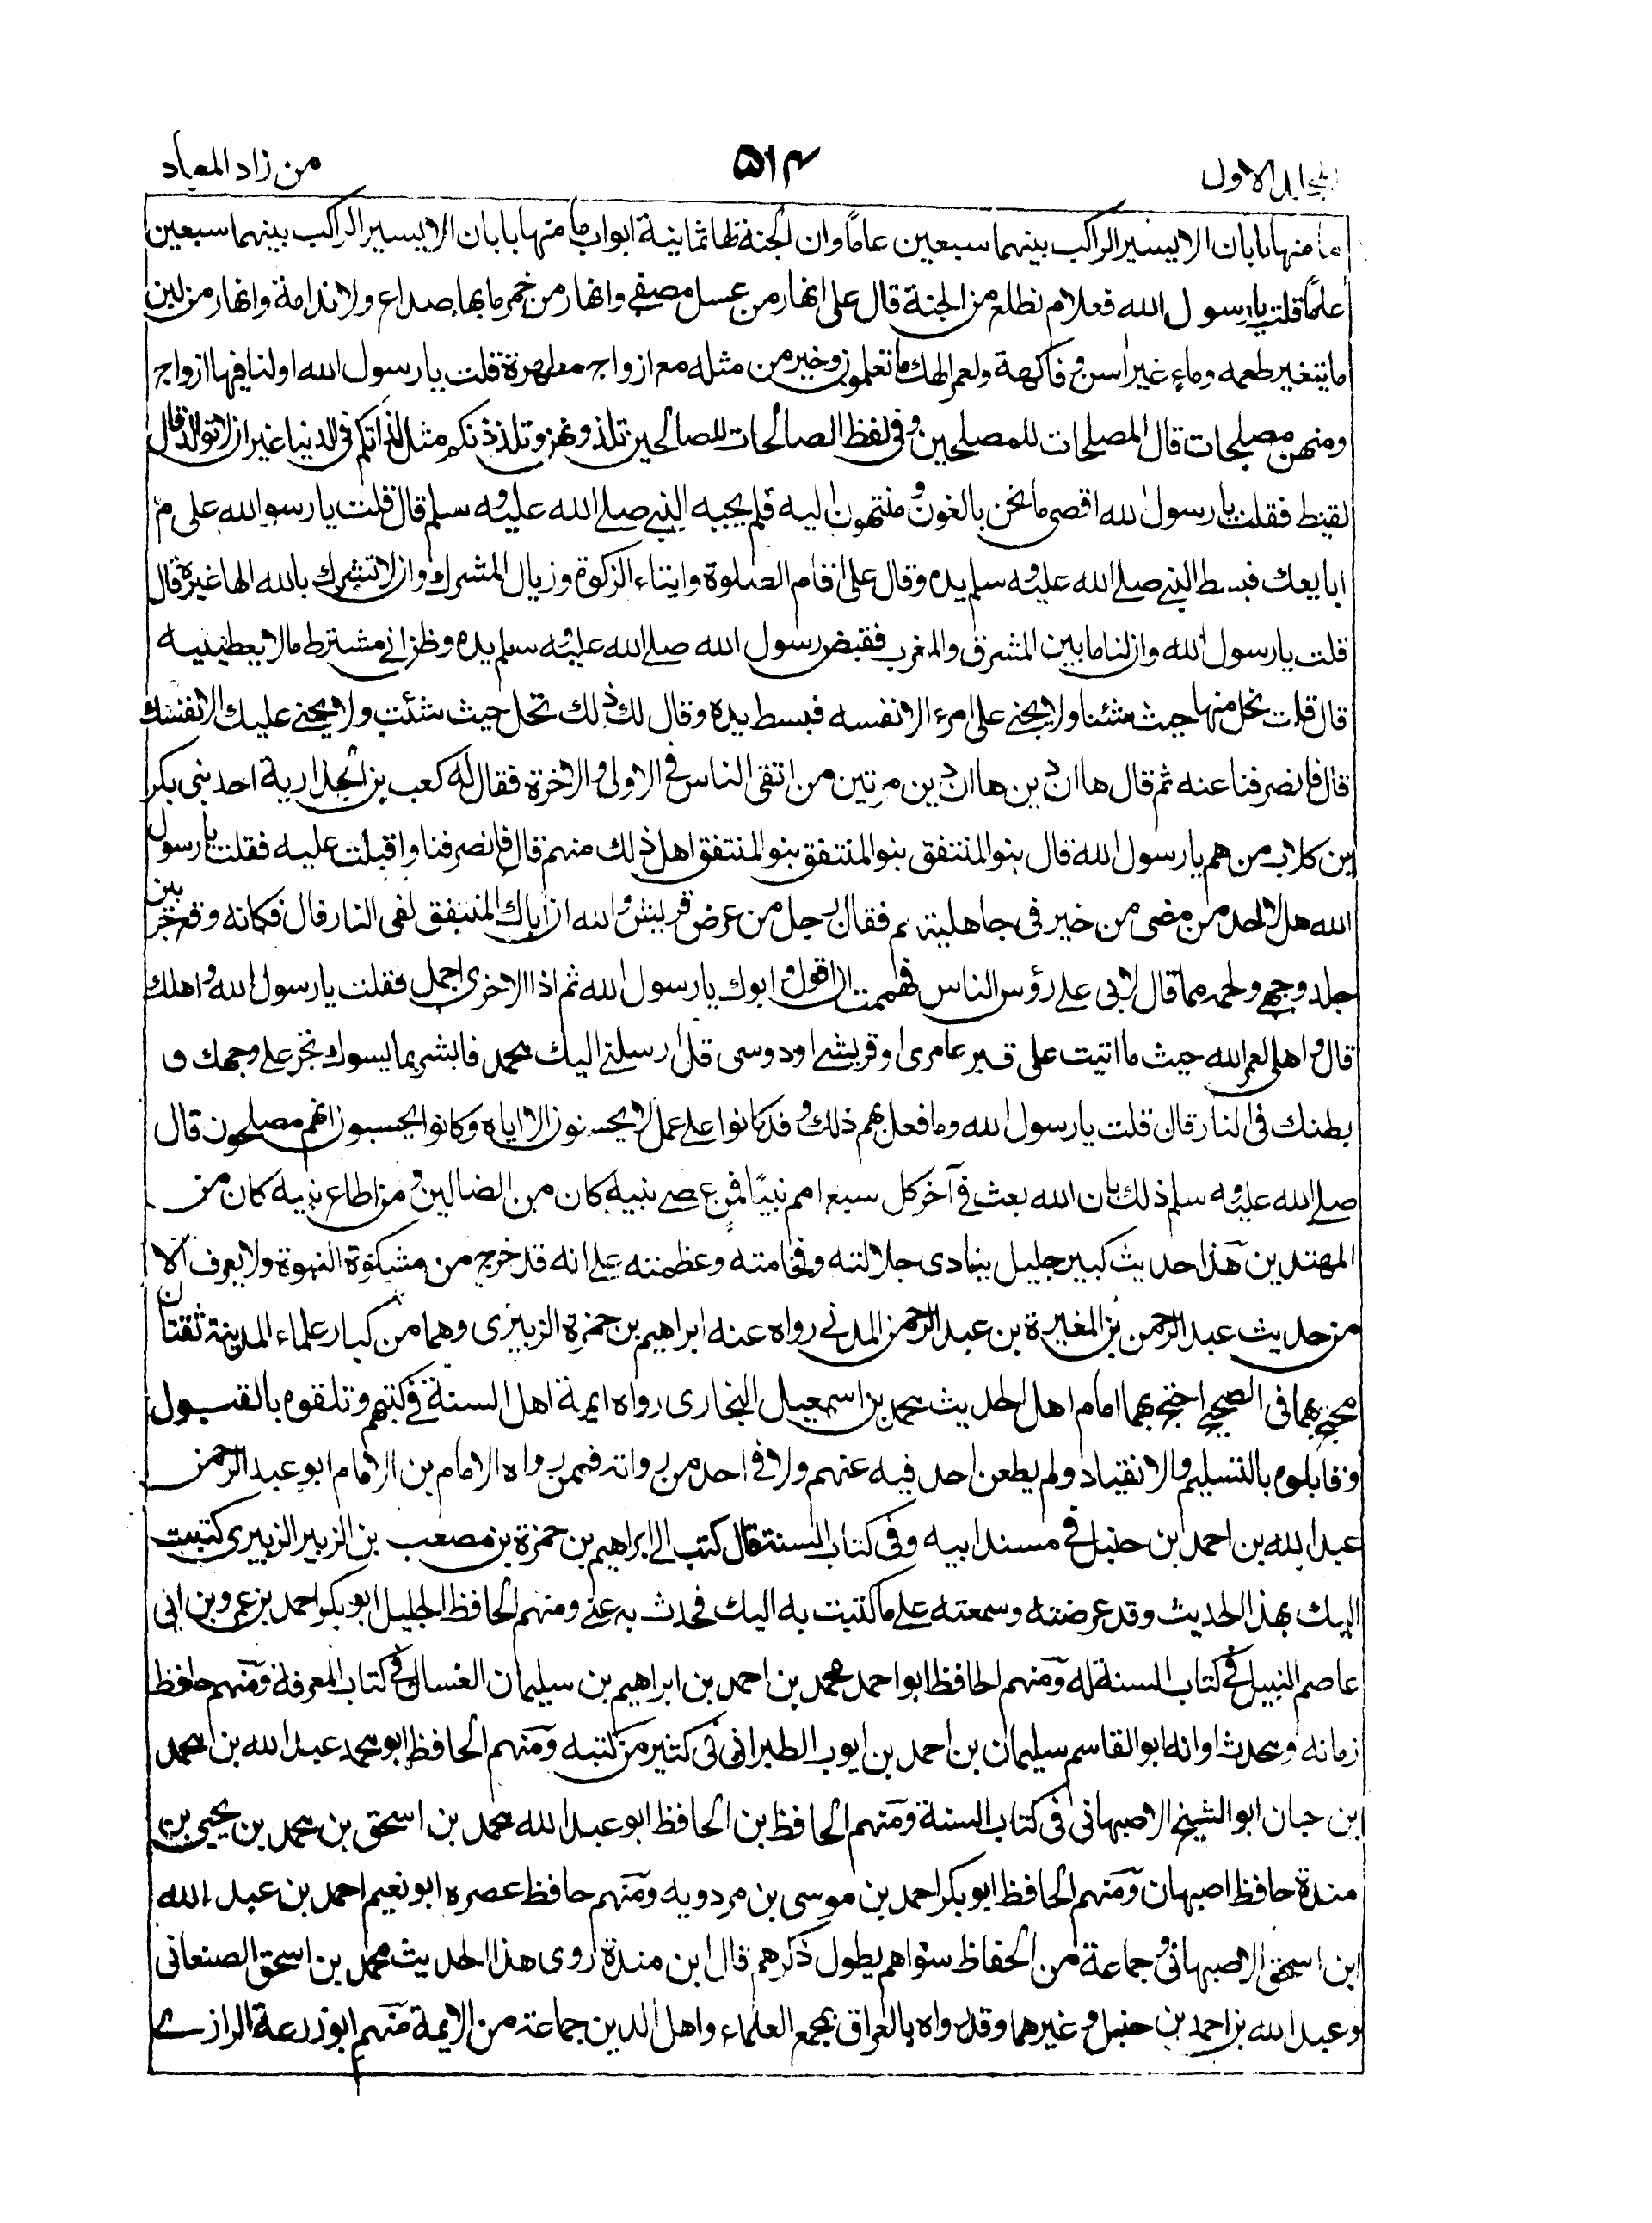 المجلد الاول ۵۱۴ من زاد المعاد
ما منها بابان الا يسير الراكب بينهما سبعين عاماً وان لجنة لها ثمانية ابواب ما منها بابان الا يسير الراكب بينهما سبعين
عاماً قلت يا رسول الله فعلام نطلع من الجنة قال على انهار من عسل مصفى وانهار من خمر ما بها صداع ولا ندامة وانهار من لبن
ما يتغير طعمه وماءٍ غير اسن و فاكهة ولعمر الهك ما تعلمون وخير من مثله مع ازواج مطهرة قلت يا رسول الله اولنا فيها ازواج
ومنهن مصلحات قال المصلحات للمصلحين و في لفظ الصالحات للصالحين تلذونهن وتلذذنكم مثل لذاتكم في الدنيا غير ان لا توالد قال
لقيط فقلت يا رسول الله اقصى ما نحن بالغون و منتهون اليه فلم يجبه النبي صلے الله عليه و سلم قال قلت يا رسول الله على م
ابايعك فبسط النبي صلے الله عليه و سلم يده وقال على اقام الصلوة وايتاء الزكوة وزيال المشرك وان لا تشرك بالله الها غيره قال
قلت يا رسول الله وان لنا ما بين المشرق والمغرب فقبض رسول الله صلے الله عليه و سلم يده وظن اني مشترط ما لا يعطينيه
قال قلت نحل منها حيث شئنا ولا يجني على امرء الا نفسه فبسط يده وقال لك ذلك تحل حيث شئت ولا يجني عليك الا نفسك
قال فانصرفنا عنه ثم قال ها ان ذين ها ان ذين مرتين من اتقى الناس في الاولى و الاخرة فقال له كعب بن الجدارية احد بني بكر
ابن كلاب من هم يا رسول الله قال بنو المنتفق بنو المنتفق بنو المنتفق اهل ذلك منهم قال فانصرفنا واقبلت عليه فقلت يا رسول
الله هل لاحد من مضى من خير في جاهليتهم فقال رجل من عرض قريش و الله ان اباك المنتفق لفي النار قال فكانه وقع حر بين
جلد وجهي ولحمه مما قال لابي على رؤس الناس فهممت ان اقول و ابوك يا رسول الله ثم اذا الاخرى اجمل فقلت يا رسول الله و اهلك
قال و اهلي لعمر الله حيث ما اتيت على قبر عامرى او قريشي او دوسى قل ارسلني اليك محمد فابشر بما يسوك تجر على وجهك و
بطنك في النار قال قلت يا رسول الله وما فعل بهم ذلك و قد كانوا على عمل لا يحسنون الا اياه وكانوا يحسبون انهم مصلحون قال
صلے الله عليه و سلم ذلك بان الله بعث في آخر كل سبع امم نبيًا فمن عصى نبيه كان من الضالين و من اطاع نبيه كان من
المهتدين هذا حديث كبير جليل ينادى جلالته وفخامته وعظمته على انه قد خرج من مشكوة النبوة ولا يعرف الا
من حديث عبد الرحمن بن المغيرة بن عبد الرحمن المدني رواه عنه ابراهيم بن حمزة الزبيرى وهما من كبار علماء المدينة ثقتان
محتج بهما في الصحيح احتج بهما امام اهل الحديث محمد بن اسمعيل البخارى رواه ايمة اهل السنة في كتبهم وتلقوه بالقبول
وقابلوه بالتسليم والانقياد ولم يطعن احد فيه عنهم ولا في احد من رواته فممن رواه الامام بن الامام ابو عبد الرحمن
عبد الله بن احمد ابن حنبل في مسند ابيه وفى كتاب السنة قال كتب الى ابراهيم بن حمزة بن مصعب بن الزبير الزبيرى كتبت
اليك بهذا الحديث وقد عرضته وسمعته على ما كتبت به اليك فحدث به عني ومنهم الحافظ الجليل ابو بكر احمد بن عمرو بن ابي
عاصم النبيل في كتاب السنة له ومنهم الحافظ ابو احمد محمد بن احمد بن ابراهيم بن سليمان العسال في كتاب المعرفة ومنهم حافظ
زمانه ومحدث اوانه ابو القاسم سليمان بن احمد بن ايوب الطبراني في كثير من كتبه ومنهم الحافظ ابو محمد عبد الله بن محمد
ابن حبان ابو الشيخ الاصبهاني في كتاب السنة ومنهم الحافظ بن الحافظ ابو عبد الله محمد بن اسحق بن محمد بن يحيى بن
مندة حافظ اصبهان ومنهم الحافظ ابو بكر احمد بن موسى بن مردويه ومنهم حافظ عصره ابو نعيم احمد بن عبد الله
ابن اسحق الاصبهاني و جماعة من الحفاظ سواهم يطول ذكرهم قال ابن مندة روى هذا الحديث محمد بن اسحق الصنعاني
وعبد الله بن احمد بن حنبل و غيرهما وقد رواه بالعراق بمجمع العلماء واهل الدين جماعة من الايمة منهم ابو زرعة الرازے